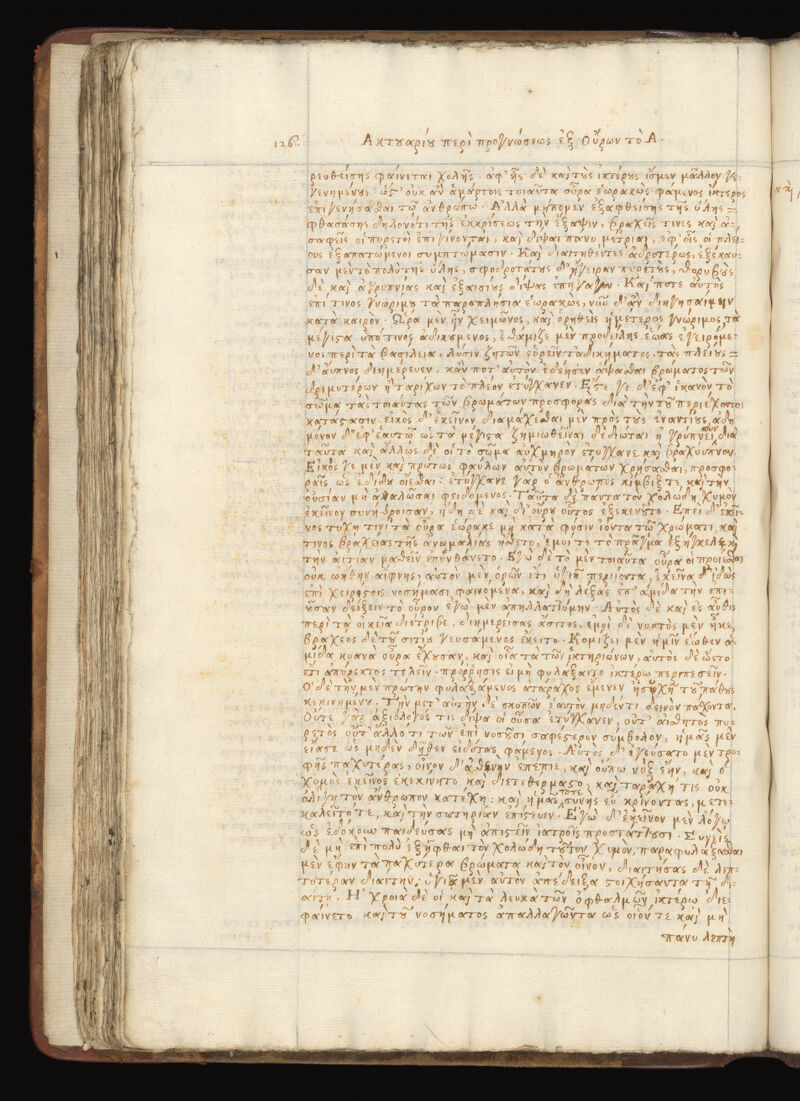 126. Ἀκτουαρίου περὶ προγνώσεως ἐξ Οὔρων τὸ Α.
ρευθείσης φαίνεται χολῆς· ἀφ' ἧς δὲ καὶ τοὺς ἰκτέρους ἴσμεν μᾶλλον γε-
γενημένους· ὥς' οὐκ ἂν ἁμάρτοις τοιαῦτα οὖρα ἑωρακὼς φάμενος ἴκτερος
ἐπιγενήσεσθαι τῷ ἀνθρώπῳ· Ἀλλὰ μήπομεν ἐξαφθείσης τῆς ὕλης
φθασάσης δηλονότι τῆς ἐκκρίσεως τὴν ἔξαψιν, βραχεῖς τινες καὶ ἀ-
σαφεῖς οἱ πυρετοὶ ἐπιγίνονται, καὶ δίψαι πάνυ μέτριαι, ἐφ' οἷς οἱ πλεί-
ους ἐξαπατώμενοι συμπτώμασιν· Καὶ διαιτηθέντες ἁδροτέρως, ἐξέκαυ-
σαν μὲν τὸ πολὺ τῆς ὕλης, σφοδροτάτους δ' ἤγειραν πυρετοὺς, θορύβους
δὲ καὶ ἀγρυπνίας καὶ ἐξαισίους δίψας ἐπήγαγον· Καί ποτε αὐτὸς
ἐπί τινος γνωρίμου τὰ παραπλήσια ἑωρακὼς, νῦν δ' ἂν διηγησαίμην
κατὰ καιρὸν· Ὥρα μὲν ἦν χειμῶνος, καὶ ὀρηθεὶς ἡμέτερος γνώριμος τὰ
μέγιστα ὑπό τινος ἀδικούμενος, ἐθάμιζε μὲν πρὸ δείλης ἕωθεν ἐγειρόμε-
νος περὶ τὰ βασίλεια, λύσιν ζητῶν εὑρεῖν τἀδικήματος, τὰς πλείους
δ' ἄυπνος διημέρευεν· κἄν ποτ' αὐτὸν ἐδέησεν ἅψασθαι βρωμάτος τῶν
δριμυτέρων ἢ ταρίχων τὸ πλέον ἐτύγχανεν· Ἔστε γε δ' ἐφ' ἱκανὸν τὸ
σῶμα τὰς τοιαύτας τῶν βρωμάτων προσφορὰς διὰ τὴν τοῦ περιέχοντος
κατάστασιν· εἰκὸς δ' ἐκεῖνον διαμάχεσθαι μὲν πρὸς τοὺς ἐναντίους, ἀδη
μονον δ' ἐφ' ἑαυτῷ ὡς τὰ μέγιστα ζημιωθεῖναι δεδιόται ἠγρύπνει οὖν διὰ
ταῦτα καὶ ἄλλως δέ οἱ τὸ σῶμα αὐχμηρὸν ἐτύγχανε καὶ βραχύυπνον
Εἰκὸς γε μὲν καὶ πρώτως φαύλων αὐτὸν βρωμάτων χρήσασθαι, προσφο-
ραῖς ὡς ἐδίδου οἴεσθαι· ἐτύγχανε γὰρ ὁ ἄνθρωπος κίμβιξ τε, καὶ τὴν
οὐσίαν μὴ ἀναλῶσαι φειδόμενος· Ταῦτα δὲ πάντα τὸν χολώδη χυμὸν
ἐκεῖνον συνήθροισαν, ἤδη δὲ καὶ δι' οὔρου οὗτος ἐξεκενοῦτο· Ἐπεὶ δ' ἐκεῖ-
νος τύχῃ τινὶ τὰ οὖρα ἑώρακε μὴ κατὰ φύσιν ἰόντα τῷ χρώματι, καὶ
τινος βραχείας τῆς ἀνωμαλίας ᾔσθετο, ἐμοί τε τὸ πρᾶγμα ἐξήγγελε, καὶ
τὴν αἰτίαν μαθεῖν ἐπυνθάνετο· Ἐγὼ δὲ τὸ μὲν τοιαῦτα οὖρα οἱ προϊέναι
οὐκ ᾠήθην αἴφνης, αὐτὸν μὲν ὁρῶν ἔτι ὑγιῆ περιιόντα, ἐκεῖνα δ' εἰδὼς
ἐπὶ χείροσιν νοσήμασι φαινόμενα, καὶ δὴ λέξας ἐπ' ἀμίδα τὴν ἐπι-
οῦσαν δείξειν τὸ οὖρον ἐγὼ μὲν ἀπηλλαττόμην· Αὐτὸς δὲ καὶ ἐς αὖθις
περὶ τὰ οἰκεῖα διέτριβε, διημερεύσας ἄσιτος, ἐμοὶ δὲ νυκτὸς μὲν ἧκε,
βραχέος δὲ τοῦ σίτου γευσάμενος ἔκειτο· Κομίζει μὲν ἡμῖν ἕωθεν ἀ-
μίδα κυανὰ οὖρα ἔχουσαν, καὶ οἷα τὰ τῶν ἰκτηριώντων, αὐτὸς δὲ ᾤετο
ἔτι ἀπύρεκτος τελεῖν· πρόρρησις εἰ μὴ φυλάξαιτο ἰκτέρῳ περιπεσεῖν·
Ὁ δὲ τὴν μὲν πρώτην φυλαξάμενος ἀτάραχος ἔμενεν ἡσυχῆ τοῦ πάθους
κεκινημένου· Τὴν μετ' αὐτὴν δὲ σκοπῶν ἑαυτὸν μηδέν τι δεινὸν πάσχοντα.
Οὔτε γὰρ ἀξιόλογός τις δίψα οἱ οὖσα ἐτύγχανεν, οὔτ' αἰσθητὸς πυ-
ρετὸς οὔτ' ἄλλό τι τῶν ἐπὶ νοσοῦσι σαφέστερον σύμβολον, ἡμᾶς μὲν
εἴασε ὡς μηδὲν δῆθεν εἰδότας φάμενος· Αὐτὸς δ' ἐγεύσατο μὲν τρο-
φῆς παχυτέρας, οἶνον δ' ἀσθενῆ ἐπέπιε, καὶ οὔπω νὺξ ἔην, καὶ ὁ
χυμὸς ἐκεῖνος ἐκεκίνητο καὶ διετιθέρμαστο, καὶ ταραχή τις οὐκ
ὀλίγη τὸν ἄνθρωπον κατέχη· καὶ ἡμᾶς τότε συνῆς εὖ κρίνοντας, μετε-
καλεῖτό τε, καὶ τὴν σωτηρίαν ἐπίστευεν· Ἐγὼ δ' ἐκεῖνον μὲν λόγῳ
ὡς ἐδόκουν παιδεύσας μὴ ἀπιστεῖν ἰατροῖς προστάττουσι· Συνεὶς
δὲ μὴ ἐπὶ πολὺ ἐξῆφθαι τὸν χολώδη τοῦτον χυμὸν, παραφυλάξασθαι
μὲν ἔφην τὰ παχύτερα βρώματα καὶ τὸν οἶνον, διαιτήσας δὲ λεπ-
τοτέραν δίαιταν, ὑγιᾶ μὲν αὐτὸν ἀπέδειξα στοιχήσαντα τῇ δι-
αίτῃ. Ἡ χροιὰ δέ οἱ καὶ τὰ λευκὰ τῶν ὀφθαλμῶν ἰκτέρῳ διε-
φαίνετο καὶ τοῦ νοσήματος ἀπαλλαγῶντα ὡς οἷόν τε καὶ μὴ
πάνυ λεπτῇ